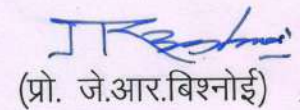 (प्रो. जे.आर.बिश्नोई)